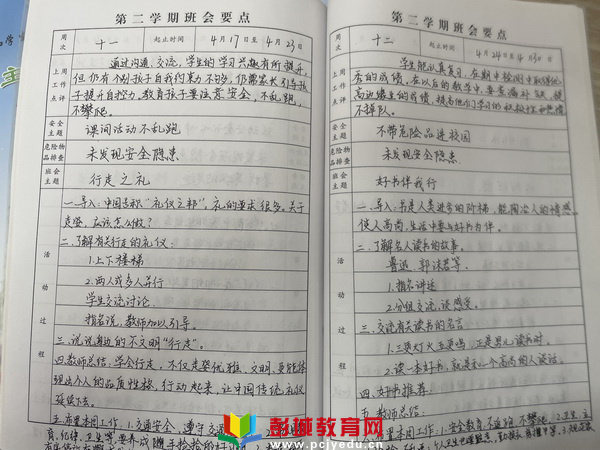 第二学期班会要点
周次 十一 起止时间 4月17日至4月23日
上周工作点评
通过沟通、交流,学生的学习兴趣有所提升,
但仍有个别孩子自我约束力不够,仍需家长引导孩
子提升自控力。教育孩子要注意安全,不乱跑,
不攀爬。
安全主题 课间活动不乱跑
危险物品排查 未发现安全隐患
班会主题 行走之礼
活动过程
一、导入:中国古称"礼仪之邦",礼的要求很多。关于
走姿,应该怎么做?
二、了解有关行走的礼仪:
1.上下楼梯
2.两人或多人并行
学生交流讨论
指名说,教师加以引导。
三、说说身边的不文明"行走"。
四、教师总结:学会行走,不仅走姿优雅、文明,更能体
现出个人的品质性格,行动起来,让中国传统礼仪
延续下去。
五、布置本周工作:1.交通安全,遵守交通
育,纪律、卫生等,要养成随手捡拾的好
第二学期班会要点
周次 十二 起止时间 4月24日至4月30日
上周工作点评
学生能认真复习,在期中检测中取得优
秀的成绩,在以后的教学中,要查漏补缺,提
高边缘生的成绩,提高他们学习的积极性和热情
不掉队。
安全主题 不带危险品进校园
危险物品排查 未发现安全隐患
班会主题 好书伴我行
活动过程
一、导入:书是人类进步的阶梯,能陶冶人的情感,
使人高尚,生活中要与好书为伴。
二、了解名人读书的故事。
鲁迅、郭沫若等。
1.指名讲述
2.分组交流,谈感受。
三、交流有关读书的名言
1.三更灯火五更鸡,正是男儿读书时。
2.读一本好书,就是和一个高尚的人谈话。
四、好书推荐
五、教师总结:
布置本周工作:1.安全教育,不追跑,不攀爬。2.卫生
彭城教育网
www.pcjyedu.cn